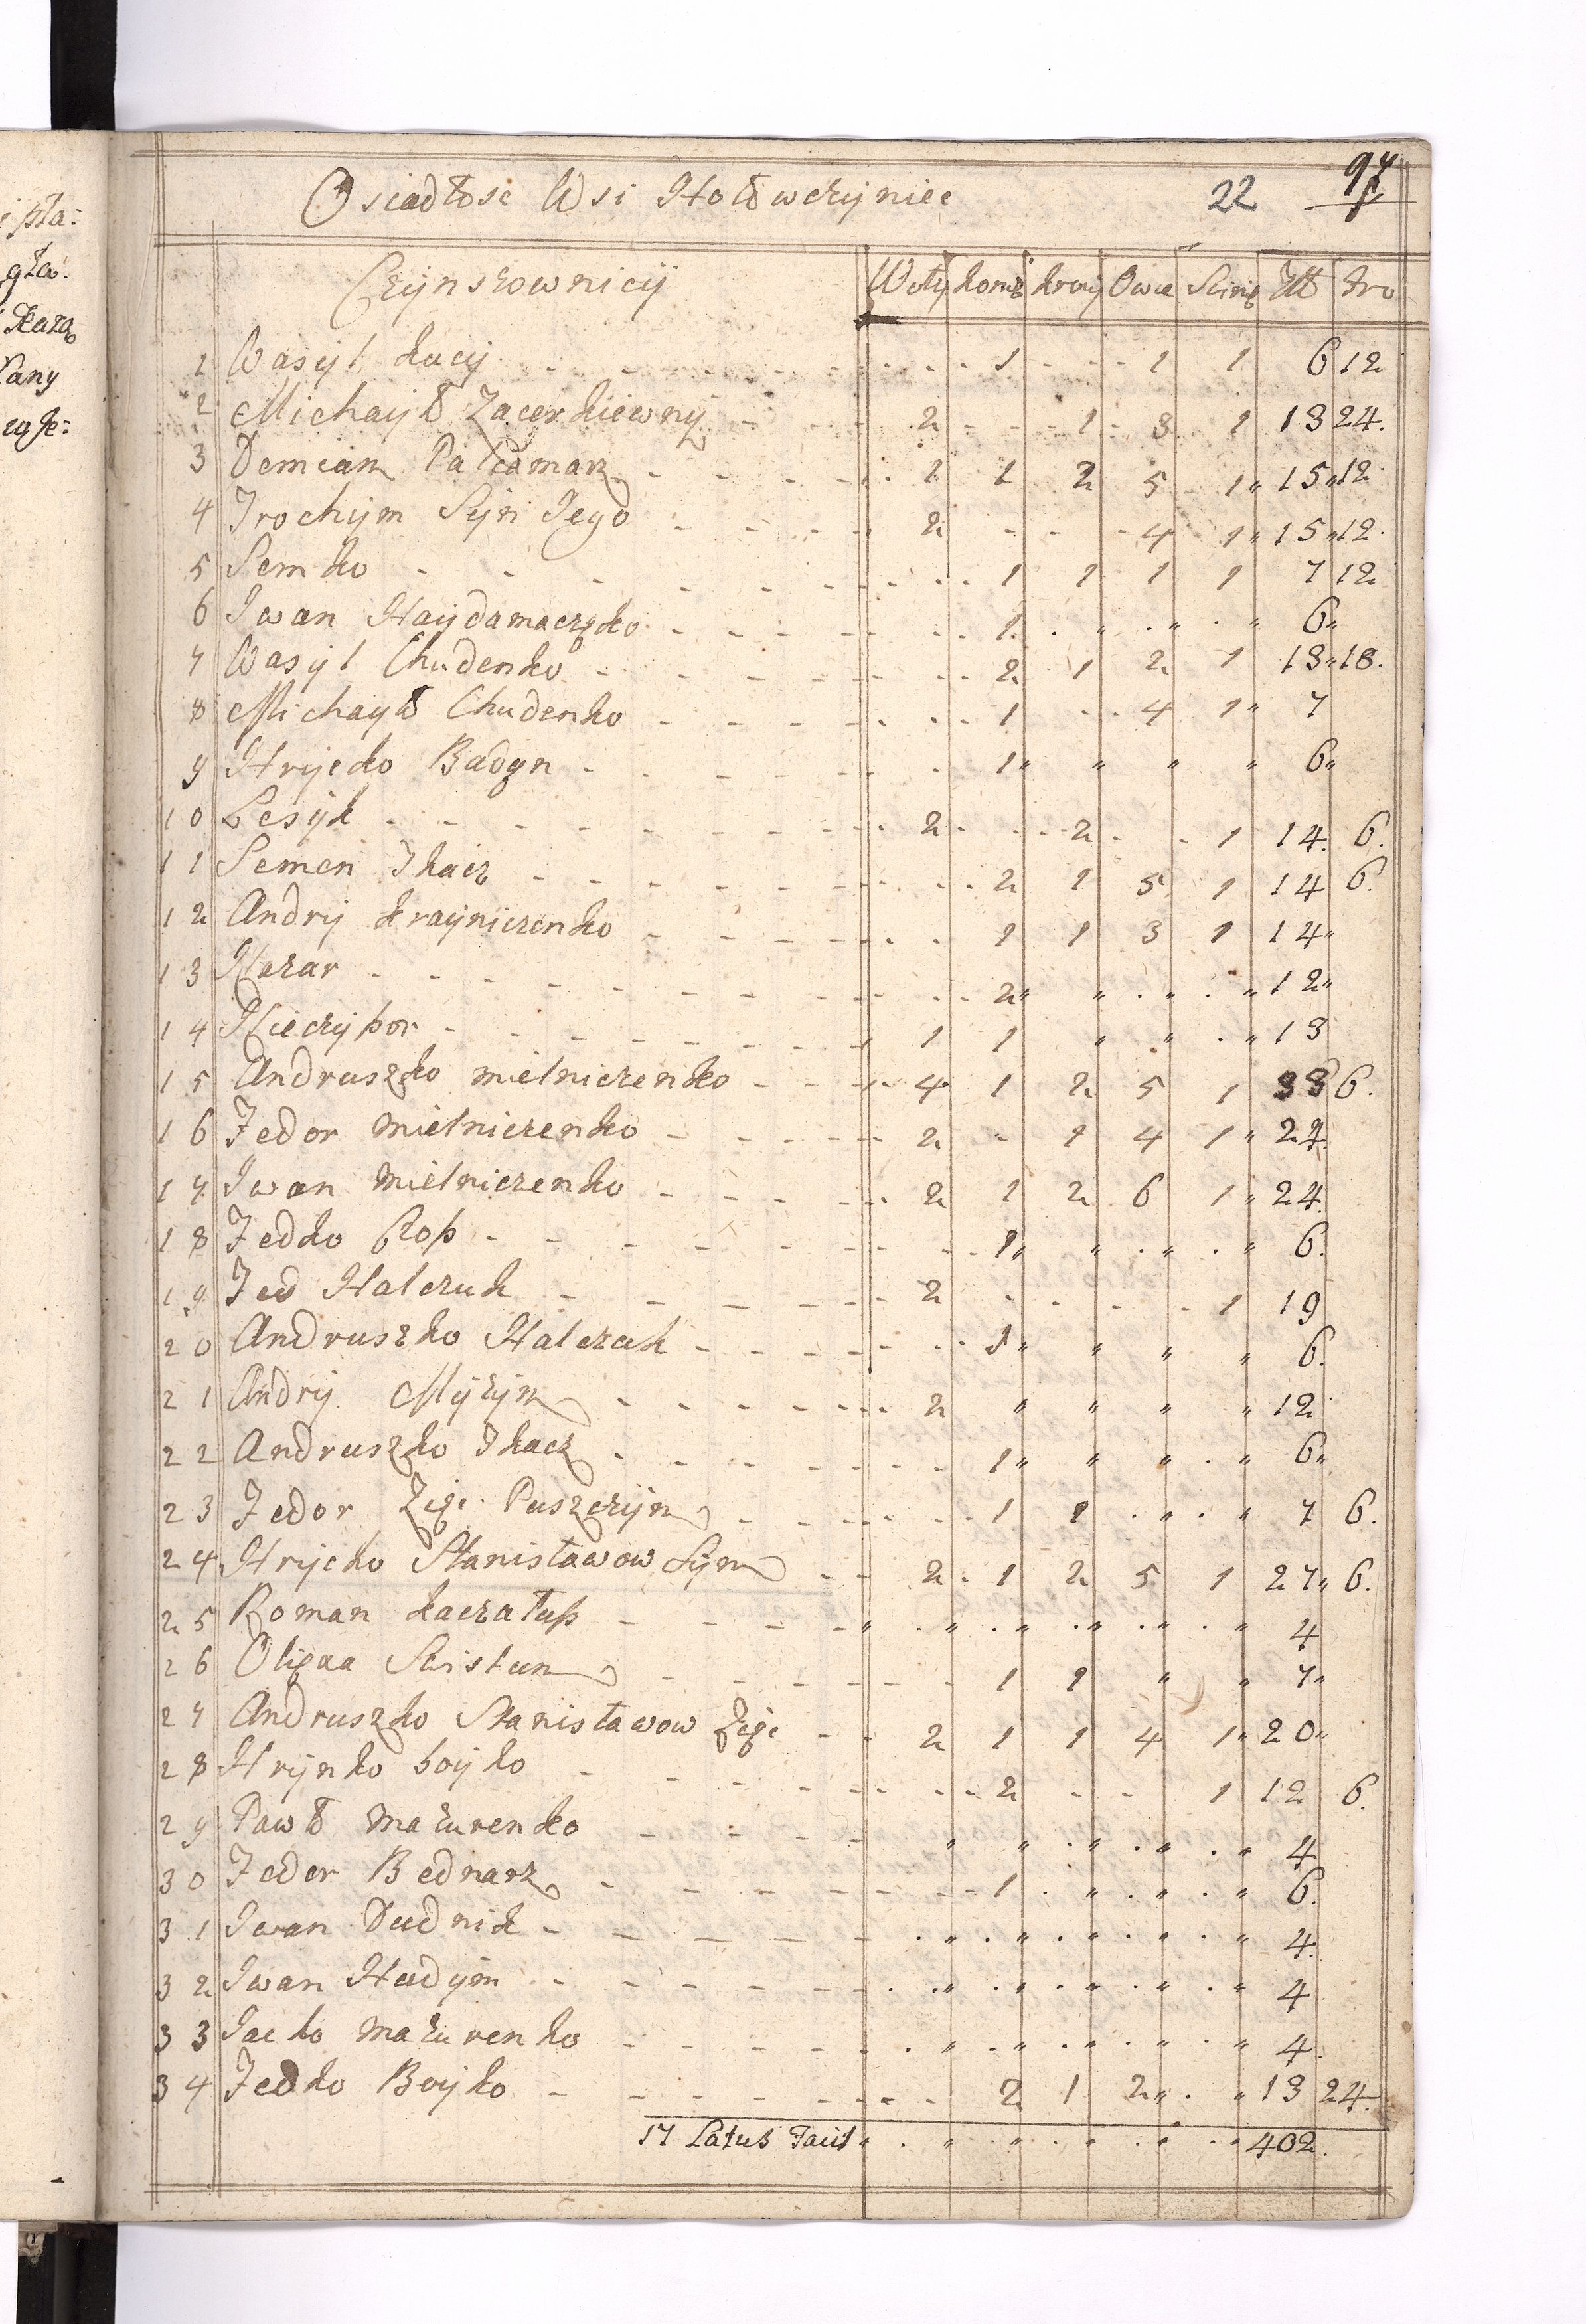 Osiadłosc Wsi Hołowczyniec 22
Czynszownicy Woły konie krowy Owce Swinie Złł Gro
1 Wasyl kucy 1 1 1 6 12
2 Michayło Zacerkiewny 2 1 3 1 13 24.
3 Demian Pałamarz 1 1 2 5 1 15 12
4 Trochym Syn Jego 2 4 1 15 12
5 Semko 1 1 1 1 7 12
6 Iwan Haydamaczęko 1 " " " 6
7 Wasyl Chudenko 2 1 2 1 13 18.
8 Michayło Chudenko 1 4 1 7
9 Hrycko Badyn 1 " " " 6
10 Lesyk 2 2 1 14 6.
11 Semen Tkacz 2 1 5 1 14 6.
12 Andrij krayniczenko 1 1 3 1 14
13 Nazar 2 " " " 12
14 Nieczypor 1 1 " " " 13
15 Andruszko mielniczenko 4 1 2 5 1 33 6.
16 Fedor mielniczenko 2 1 4 1 24
17 Iwan mielniczenko 2 1 2 6 1 24
18 Fedko 1 " " " 6.
19 Fed Halczuk 2 1 19
20 Andruszko Halczuk 1 " " " 6.
21 Andrij Myzyn 2 " " " " 12
22 Andruszko Tkacz 1 " " " 6
23 Fedor Zięc Puszczyn 1 1 " " 7 6.
24 Hrycko Stanisławow Syn 2 1 2 5 1 27 6.
25 Roman kaczałup " " " " " " 4
26 Swistun 1 1 " " 7
27 Andruszko Stanisławow Zięc 2 1 1 4 1 20
28 Hrynko boyko 2 1 12 6.
29 Pawło mazurenko " " " " " 4
30 Fedor Bednarz 1 " " " 6.
31 Iwan Dudnik " " " " " 4
32 Iwan Hudym " " " " " 4
33 Jacko mazurenko " " " " " 4
34 Fedko Boyko 2 1 2 " 13 24.
Latus Facit " " " " " " 402.